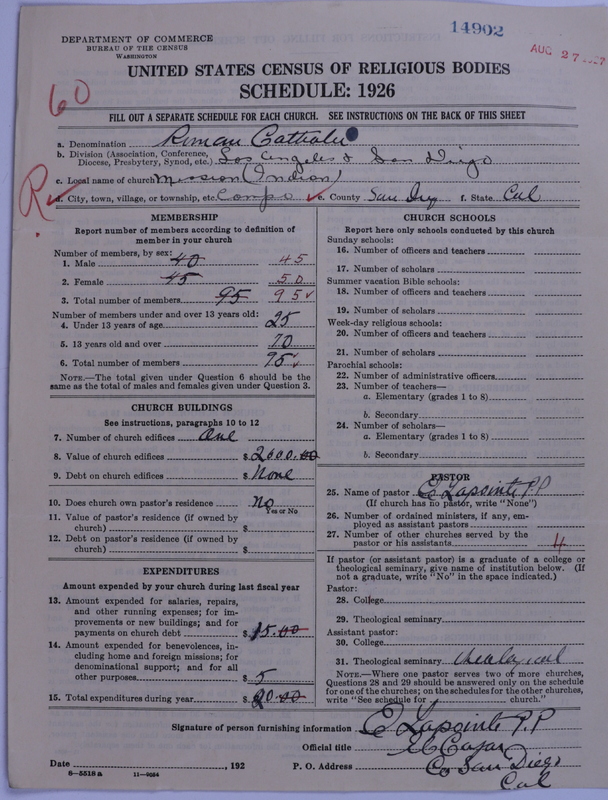 14902
AUG 27 1927
DEPARTMENT OF COMMERCE
BUREAU OF THE CENSUS
WASHINGTON
UNITED STATES CENSUS OF RELIGIOUS BODIES
SCHEDULE: 1926
60
FILL OUT A SEPARATE SCHEDULE FOR EACH CHURCH. SEE INSTRUCTIONS ON THE BACK OF THIS SHEET
a. Denomination Roman Catholic
b. Division (Association, Conference, Diocese, Presbytery, Synod, etc.) Los Angeles & San Diego
c. Local name of church Mission (Indian)
R
d. City, town, village, or township, etc. Campo e. County San Diego f. State Cal
MEMBERSHIP
Report number of members according to definition of
member in your church
Number of members, by sex:
1. Male 40 45
2. Female 45 50
3. Total number of members 95 95
Number of members under and over 13 years old:
4. Under 13 years of age 25
5. 13 years old and over 70
6. Total number of members 95
NOTE.—The total given under Question 6 should be the
same as the total of males and females given under Question 3.
CHURCH BUILDINGS
See instructions, paragraphs 10 to 12
7. Number of church edifices One
8. Value of church edifices $2000.00
9. Debt on church edifices $None
10. Does church own pastor's residence No
Yes or No
11. Value of pastor's residence (if owned by
church) $
12. Debt on pastor's residence (if owned by
church) $
EXPENDITURES
Amount expended by your church during last fiscal year
13. Amount expended for salaries, repairs,
and other running expenses; for im-
provements or new buildings; and for
payments on church debt $15.00
14. Amount expended for benevolences, in-
cluding home and foreign missions; for
denominational support; and for all
other purposes $5
15. Total expenditures during year $20.00
CHURCH SCHOOLS
Report here only schools conducted by this church
Sunday schools:
16. Number of officers and teachers
17. Number of scholars
Summer vacation Bible schools:
18. Number of officers and teachers
19. Number of scholars
Week-day religious schools:
20. Number of officers and teachers
21. Number of scholars
Parochial schools:
22. Number of administrative officers
23. Number of teachers—
a. Elementary (grades 1 to 8)
b. Secondary
24. Number of scholars—
a. Elementary (grades 1 to 8)
b. Secondary
PASTOR
25. Name of pastor E Lapointe P.P
(If church has no pastor, write "None")
26. Number of ordained ministers, if any, em-
ployed as assistant pastors
27. Number of other churches served by the
pastor or his assistants 4
If pastor (or assistant pastor) is a graduate of a college or
theological seminary, give name of institution below. (If
not a graduate, write "No" in the space indicated.)
Pastor:
28. College
29. Theological seminary
Assistant pastor:
30. College
31. Theological seminary theological
NOTE.—Where one pastor serves two or more churches,
Questions 28 and 29 should be answered only on the schedule
for one of the churches; on the schedules for the other churches,
write "See schedule for church."
Signature of person furnishing information E Lapointe P.P
Official title El Cajon
Date , 192 P. O. Address Co San Diego
Cal
6—5518 a 11—9024